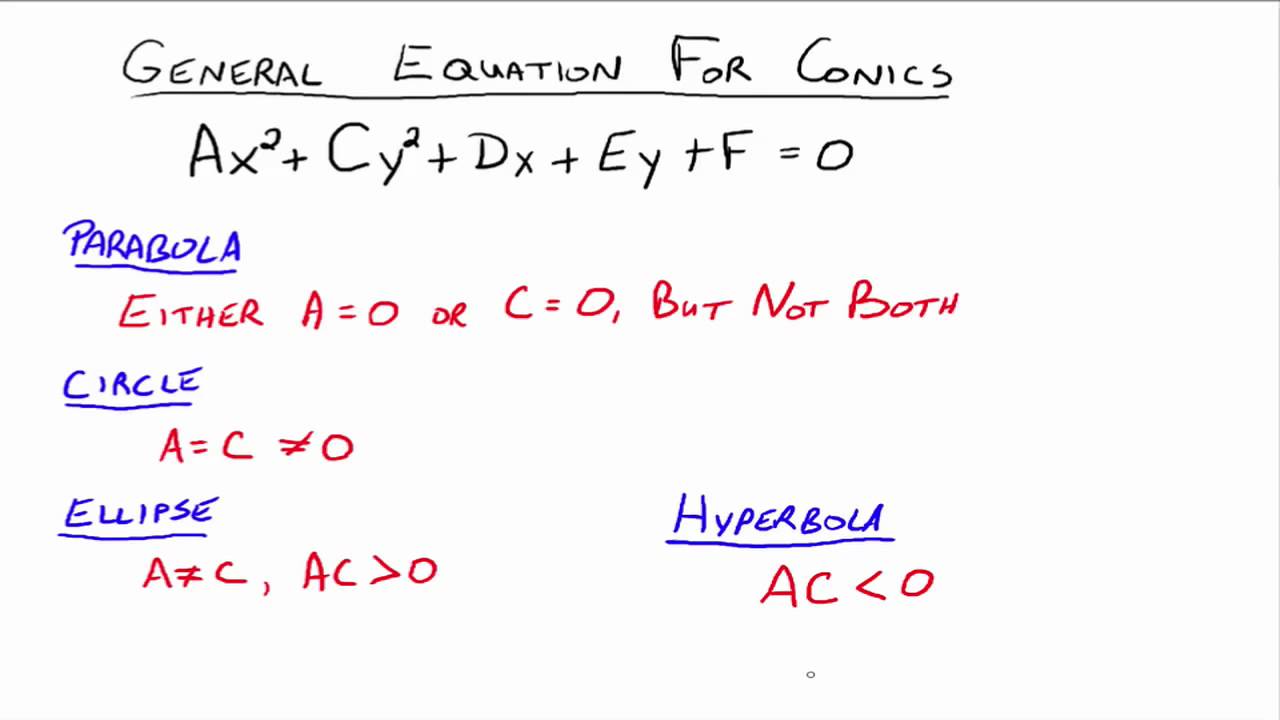 GENERAL EQUATION FOR CONICS
Ax² + Cy² + Dx + Ey + F = 0
PARABOLA
EITHER A = 0 OR C = 0, BUT NOT BOTH
CIRCLE
A = C ≠ 0
ELLIPSE
A ≠ C, AC > 0
HYPERBOLA
AC < 0